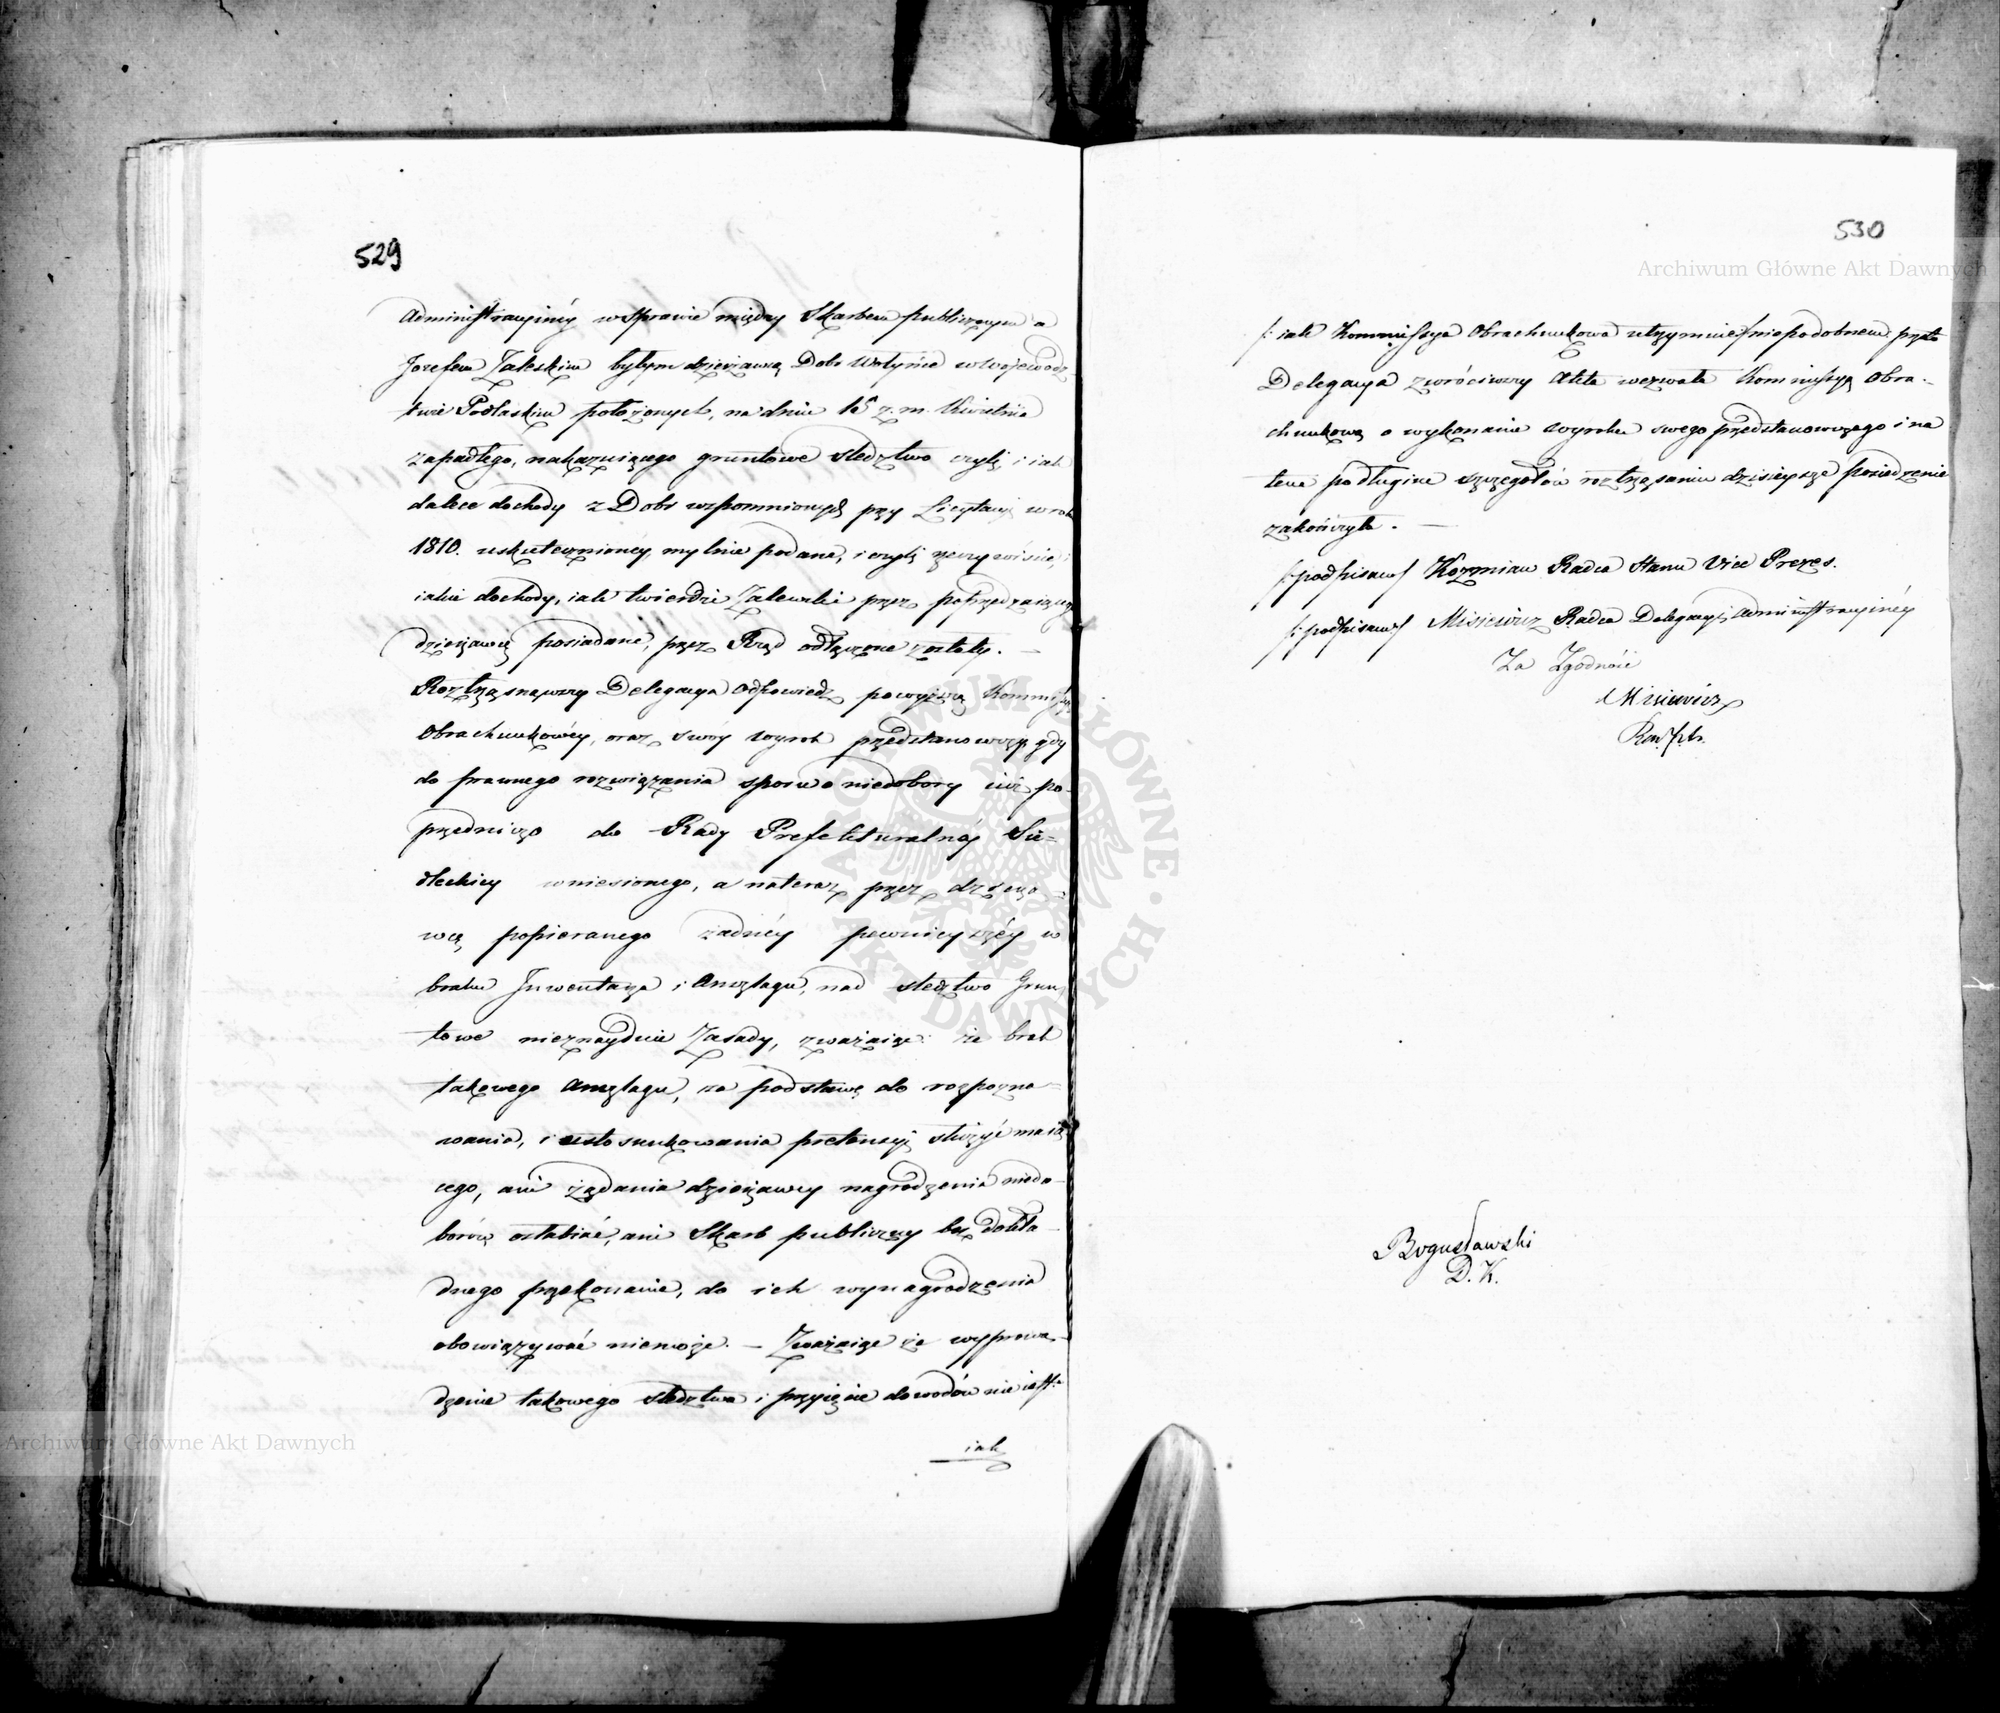 529
Administracyinéy w sprawie między Skarbem publicznym a
Jozefem Zaleskim byłym dzierżawcą Dobr Wotynie w Wojewodz
twie Podlaskim położonych, na dniu 15 z. m. Kwietnia
zapadłego, nakazuiącego gruntowe sledztwo czyli, i iak
dalece dochody z Dobr wzpomnionych przy Licytacyi w roku
1810. uskutecznionéy, mylnie podane, i czyli rzeczywiście,
iakie dochody, iak twierdzi Zalewski przez poprzedzaiącego
dzierżawcę posiadane, przez Rząd odłączone zostały. —
Roztrząsnąwszy Delegacya odpowiedź powyższą Kommissyi
Obrachunkowéy, oraz swóy wyrok przedstanowczy, gdy
do prawnego rozwiązania sporu o niedobory iuż po-
przedniczo do Rady Prefekturalnéy Sie-
dleckiey wniesionego, a nateraz przez dzierża-
wcę popieranego żadnéy pewnieyszéy w
braku Inwentarza i Anszlagu, nad sledztwo Grun,
towe nieznayduie Zasady, zważaiąc: że brak
takowego Anszlagu, za podstawę do rozpozna-
wania, i ustosunkowania pretensyi służyć maią
cego, ani żądania dzierżawcy nagrodzenia niedo-
borów osłabiać, ani Skarb publiczny bez dokła-
dnego przekonania, do ich wynagrodzenia
obowiązywać niemoże. — Zważaiąc że wyprowa-
dzenie takowego sledztwa i przyięcie dowodów nie iest:
iak
530
Archiwum Główne Akt Dawnych
/: iak Kommissya Obrachunkowa utrzymuie/ niepodobnem przeto
Delegacya zwróciwszy Akta wezwała Kommissyą Obra-
chunkową o wykonanie wyroku swego przedstanowczego i na
tem po długim szczegółów roztrząsaniu dzisieysze posiedzenie
zakończyła. —
/: podpisano/ Kozmian Radca Stanu Vice Prezes.
/: podpisano/ Misiewicz Radca Delegacyi Administracyinéy
Za Zgodność
Misiewicz
Bogusławski
D. K.
ARCHIWUM GŁÓWNE · AKT DAWNYCH ·
Archiwum Główne Akt Dawnych